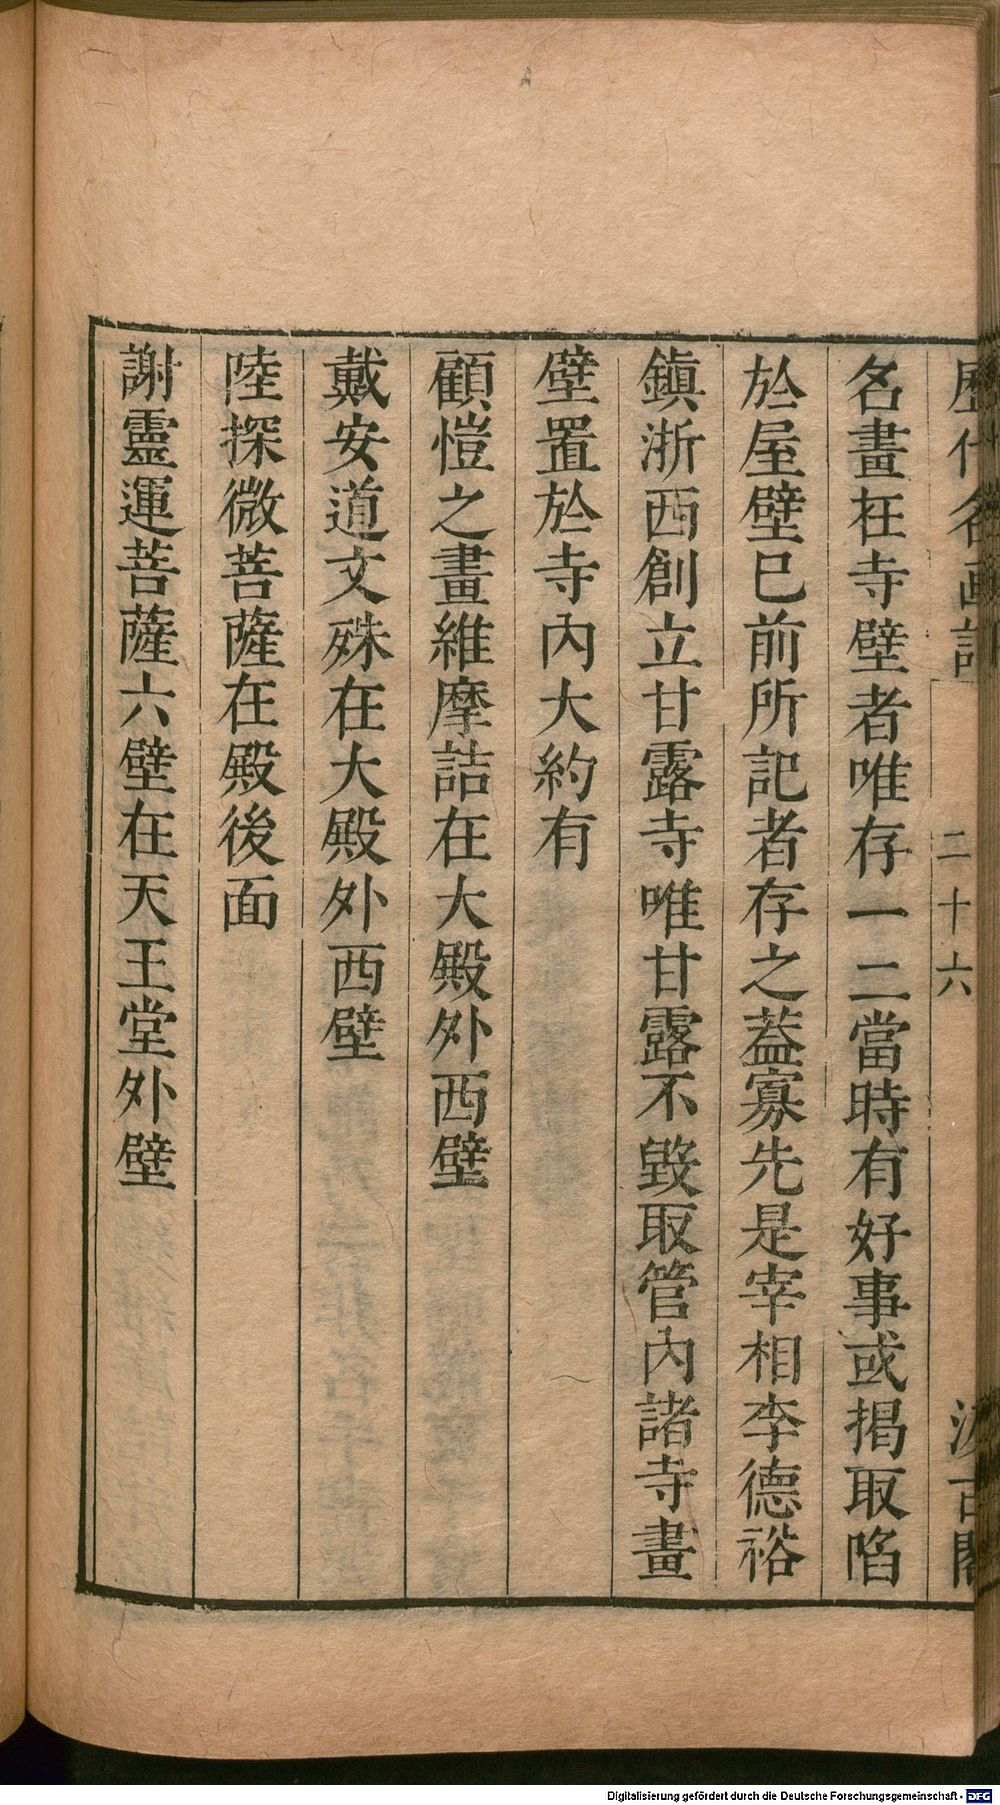 歷代名画記
二十六
汲古閣
名畫在寺壁者唯存一二當時有好事或揭取陷
於屋壁已前所記者存之蓋寡先是宰相李德裕
鎮浙西創立甘露寺唯甘露不毀取管內諸寺畫
壁置於寺內大約有
顧愷之畫維摩詰在大殿外西壁
戴安道文殊在大殿外西壁
陸探微菩薩在殿後面
謝靈運菩薩六壁在天王堂外壁
Digitalisierung gefördert durch die Deutsche Forschungsgemeinschaft - DFG